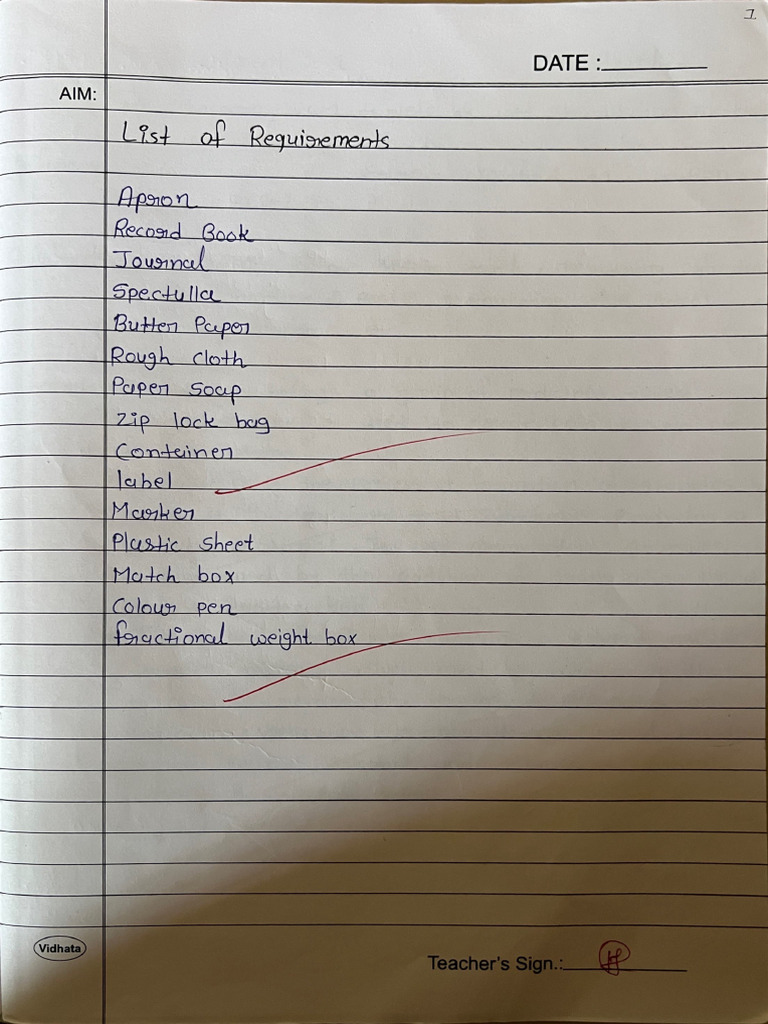 1
DATE :
AIM:
List of Requirements
Apron
Record Book
Journal
Spectulla
Butter Paper
Rough cloth
Paper soap
Zip lock bag
Container
label
Marker
Plastic sheet
Match box
Colour pen
fractional weight box
Vidhata
Teacher's Sign.: